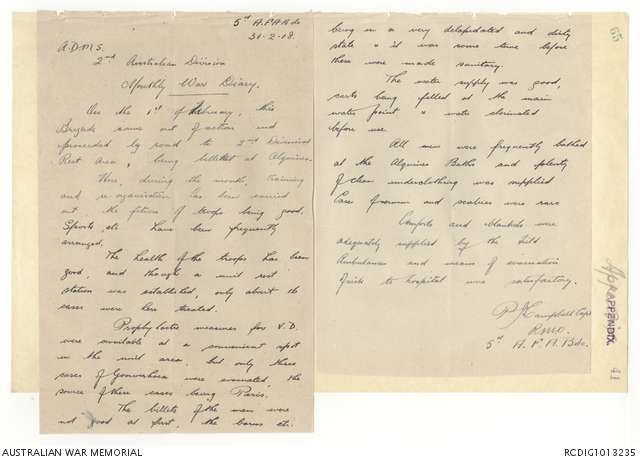 5th A.F.A.Bde
31-2-18.
A.D.M.S.
2nd Australian Division
Monthly War Diary.
On the 1st of February, this
Brigade came out of action and
proceeded by road to 2nd Divisional
Rest Area, being billeted at Alquines.
Here, during the month, training
and re-organisation has been carried
out, the of troops being good.
Sports etc. have been frequently
arranged.
The health of the troops has been
good, and though a unit rest
station was established, only about 16
cases were here treated.
Prophylactic measures for V.D.
were available at a convenient spot
in the unit area, but only three
cases of Gonorrhoea were evacuated, the
source of these cases being Paris.
The billets of the men were
not good at first, the barns etc.
being in a very delapedated and dirty
state & it was some time before
these were made sanitary.
The water supply was good,
carts being filled at the main
water point & water chlorinated
before use.
All men were frequently bathed
at the Alquines Baths and plenty
of clean underclothing was supplied
Cases of and scabies were rare
Comforts and blankets were
adequately supplied by the Field
Ambulances and means of evacuation
of sick to hospital was satisfactory.
P Campbell Capt
R.M.O.
5th A.F.A.Bde.
65
APPENDIX
41
AUSTRALIAN WAR MEMORIAL
RCDIG1013235